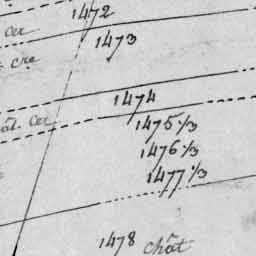 1472
cer
1473
cre
1474
cer
1475 1/3
1476 1/3
1477 1/3
1478 chât